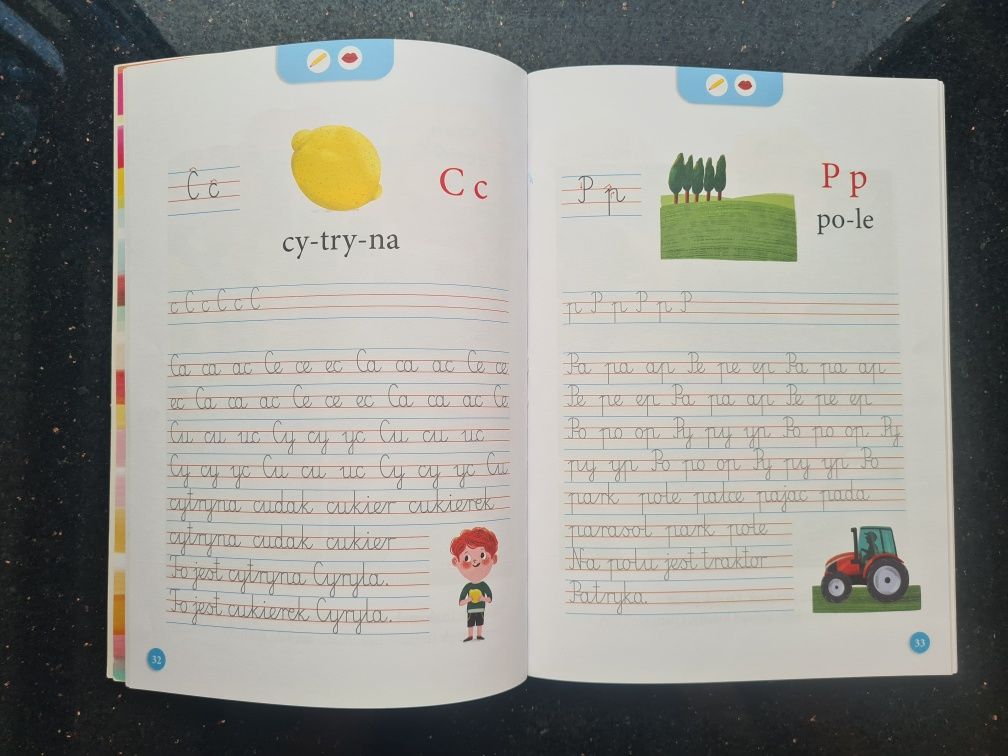 C c
C c
cy-try-na
c C c C c C
Ca ca ac Ce ce ec Ca ca ac Ce ce
ec Ca ca ac Ce ce ec Ca ca ac Ce
Cu cu uc Cy cy yc Cu cu uc
Cy cy yc Cu cu uc Cy cy yc Cu
cytryna cudak cukier cukierek
cytryna cudak cukier
To jest cytryna Cyryla.
To jest cukierek Cyryla.
32
P p
P p
po-le
p P p P p P
Pa pa ap Pe pe ep Pa pa ap
Pe pe ep Pa pa ap Pe pe ep
Po po op Py py yp Po po op Py
py yp Po po op Py py yp Po
park pole palce pajac pada
parasol park pole
Na polu jest traktor
Patryka.
33